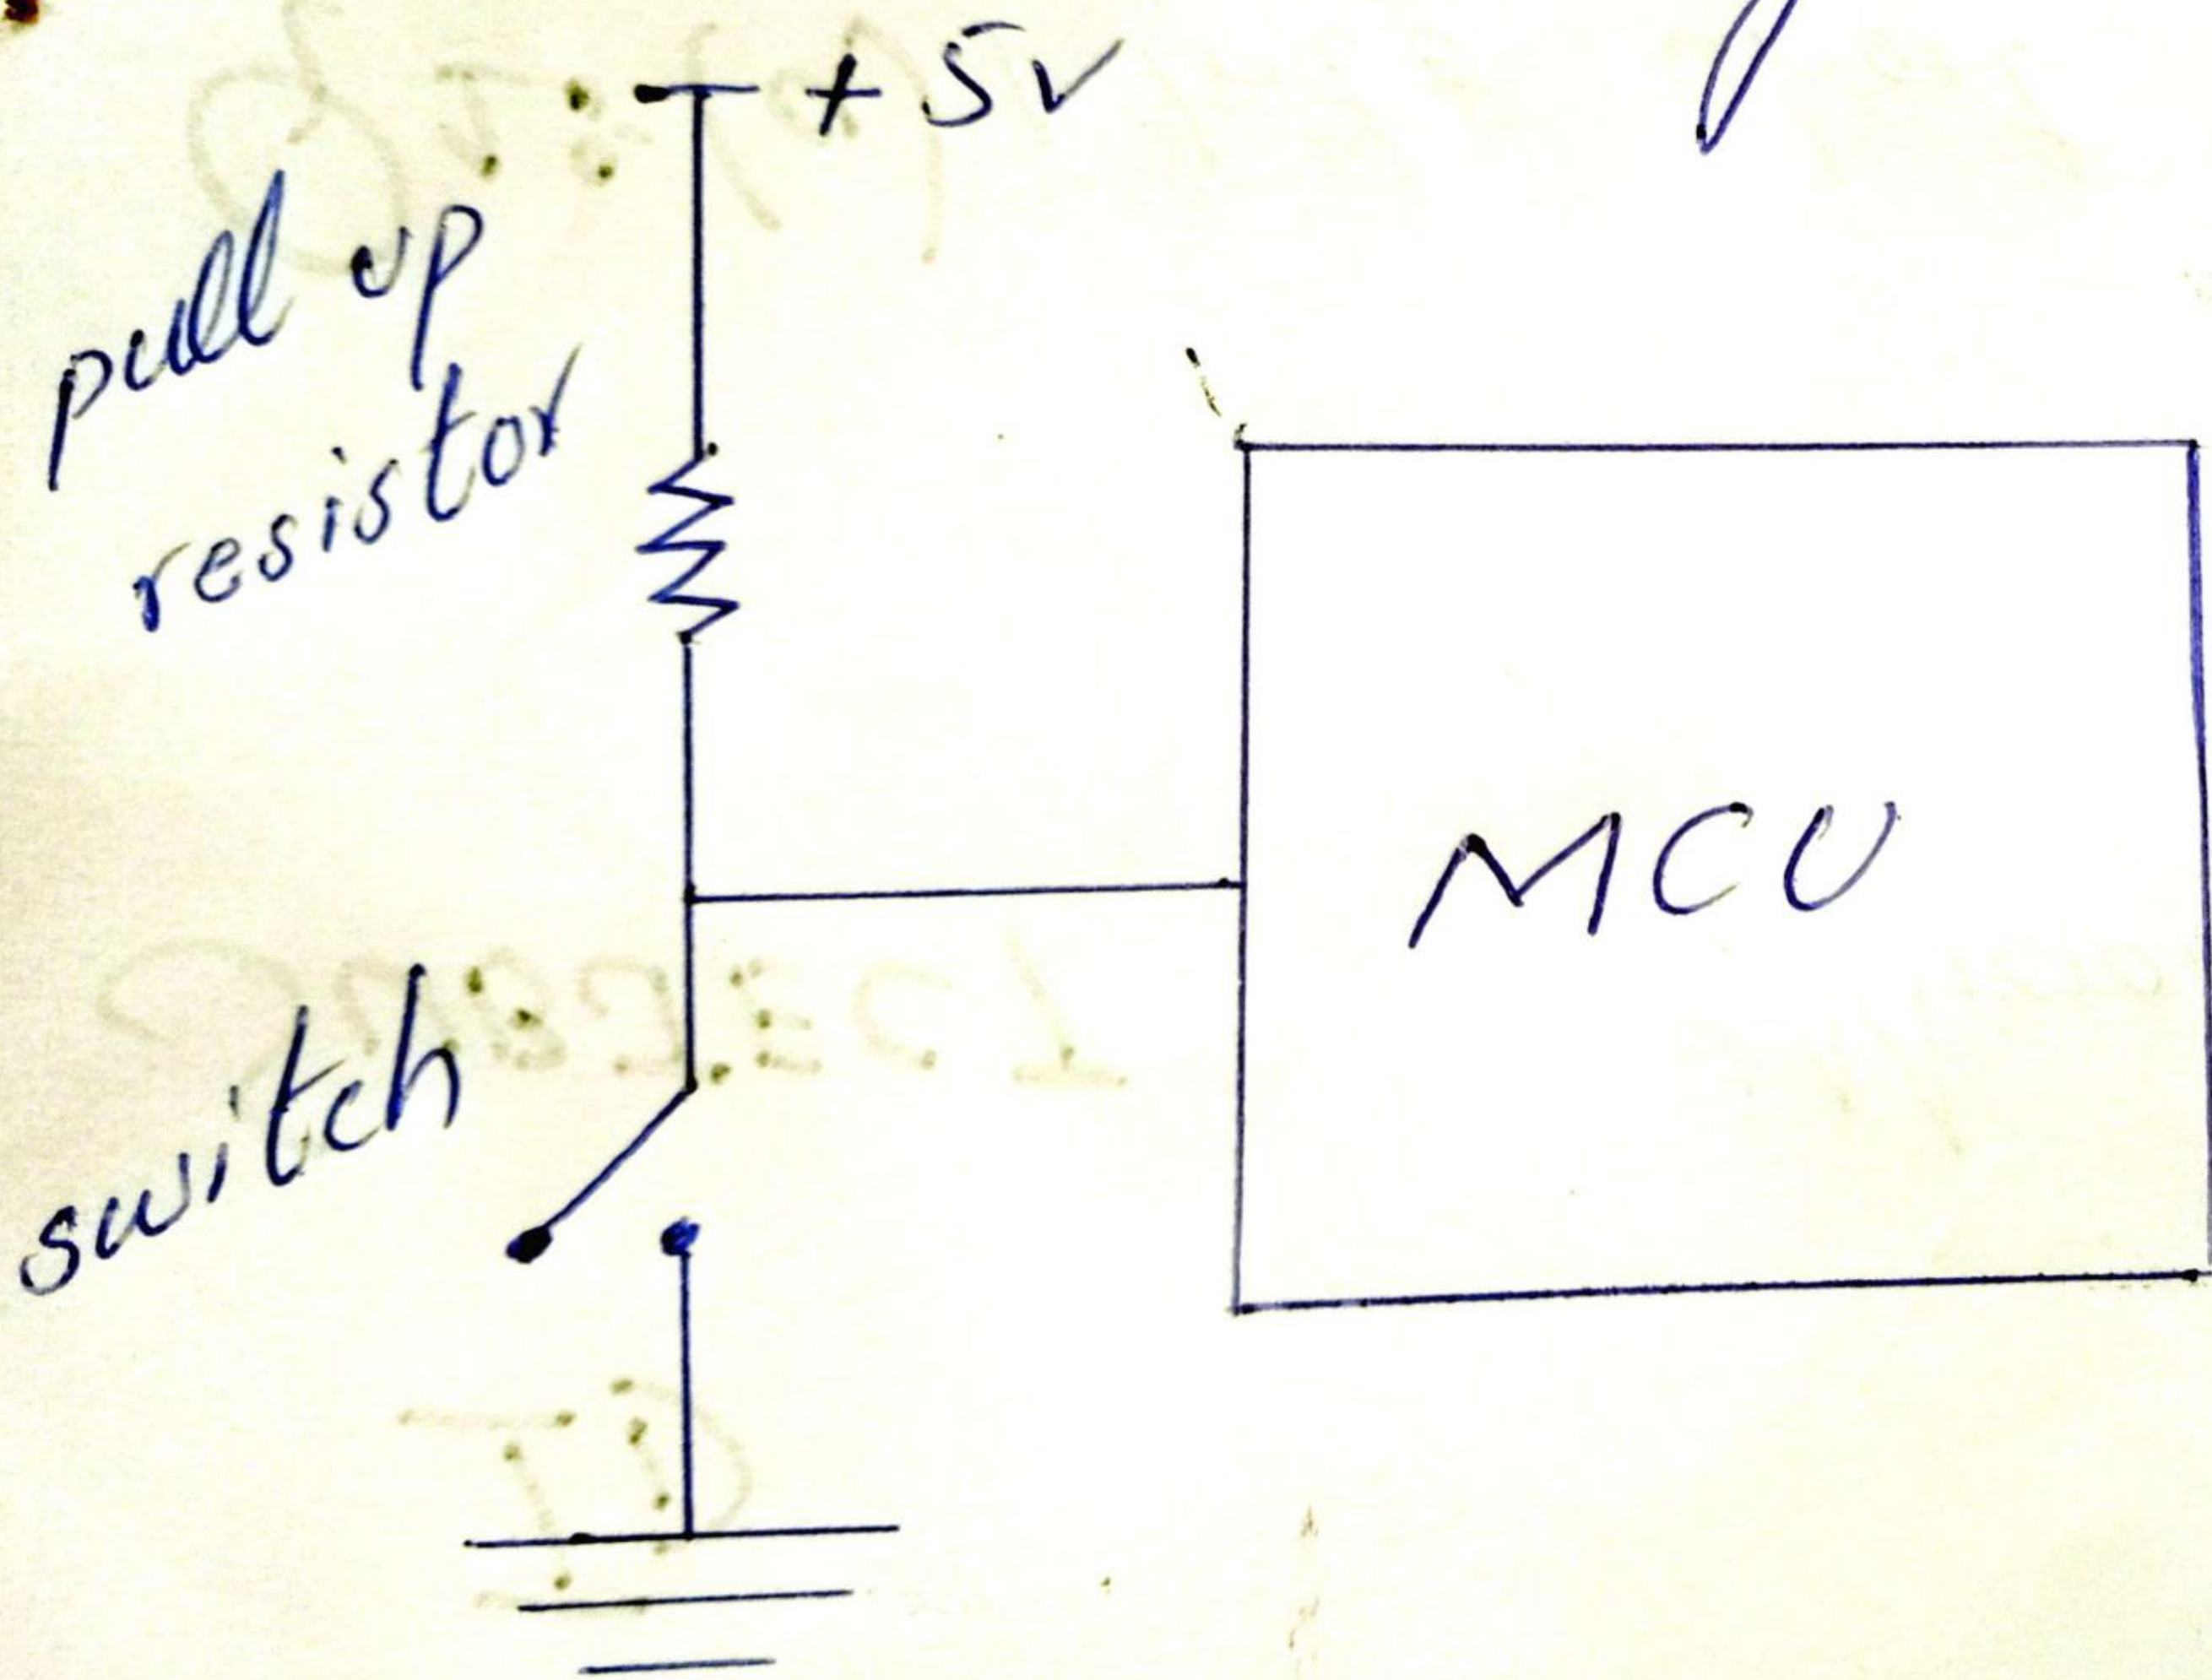 + 5v
pull up
resistor
MCU
switch